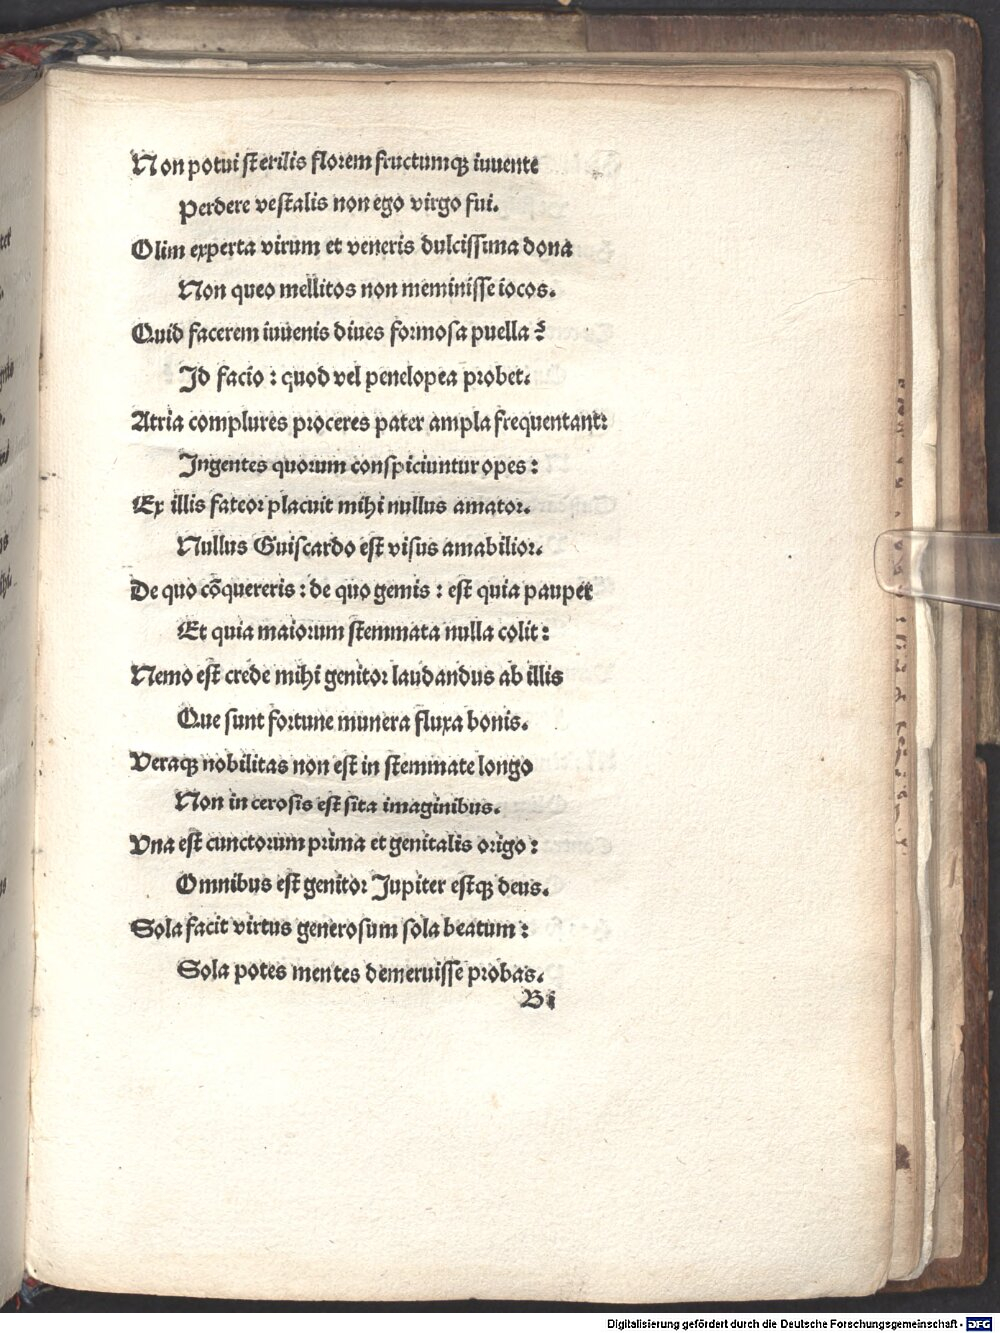 Non potui sterilis florem fructumqꝫ iuuente
Perdere vestalis non ego virgo fui.
Olim experta virum et veneris dulcissima dona
Non queo mellitos non meminisse iocos.
Quid facerem iuuenis diues formosa puella?
Id facio : quod vel penelopea probet.
Atria complures proceres pater ampla frequentant:
Ingentes quorum conspiciuntur opes :
Ex illis fateor placuit mihi nullus amator.
Nullus Guiscardo est visus amabilior.
De quo cōquereris : de quo gemis : est quia pauper
Et quia maiorum stemmata nulla colit :
Nemo est crede mihi genitor laudandus ab illis
Que sunt fortune munera fluxa bonis.
Veraqꝫ nobilitas non est in stemmate longo
Non in cerosis est sita imaginibus.
Vna est cunctorum prima et genitalis origo :
Omnibus est genitor Jupiter estqꝫ deus.
Sola facit virtus generosum sola beatum :
Sola potes mentes demeruisse probas.
Bi
Digitalisierung gefördert durch die Deutsche Forschungsgemeinschaft - DFG